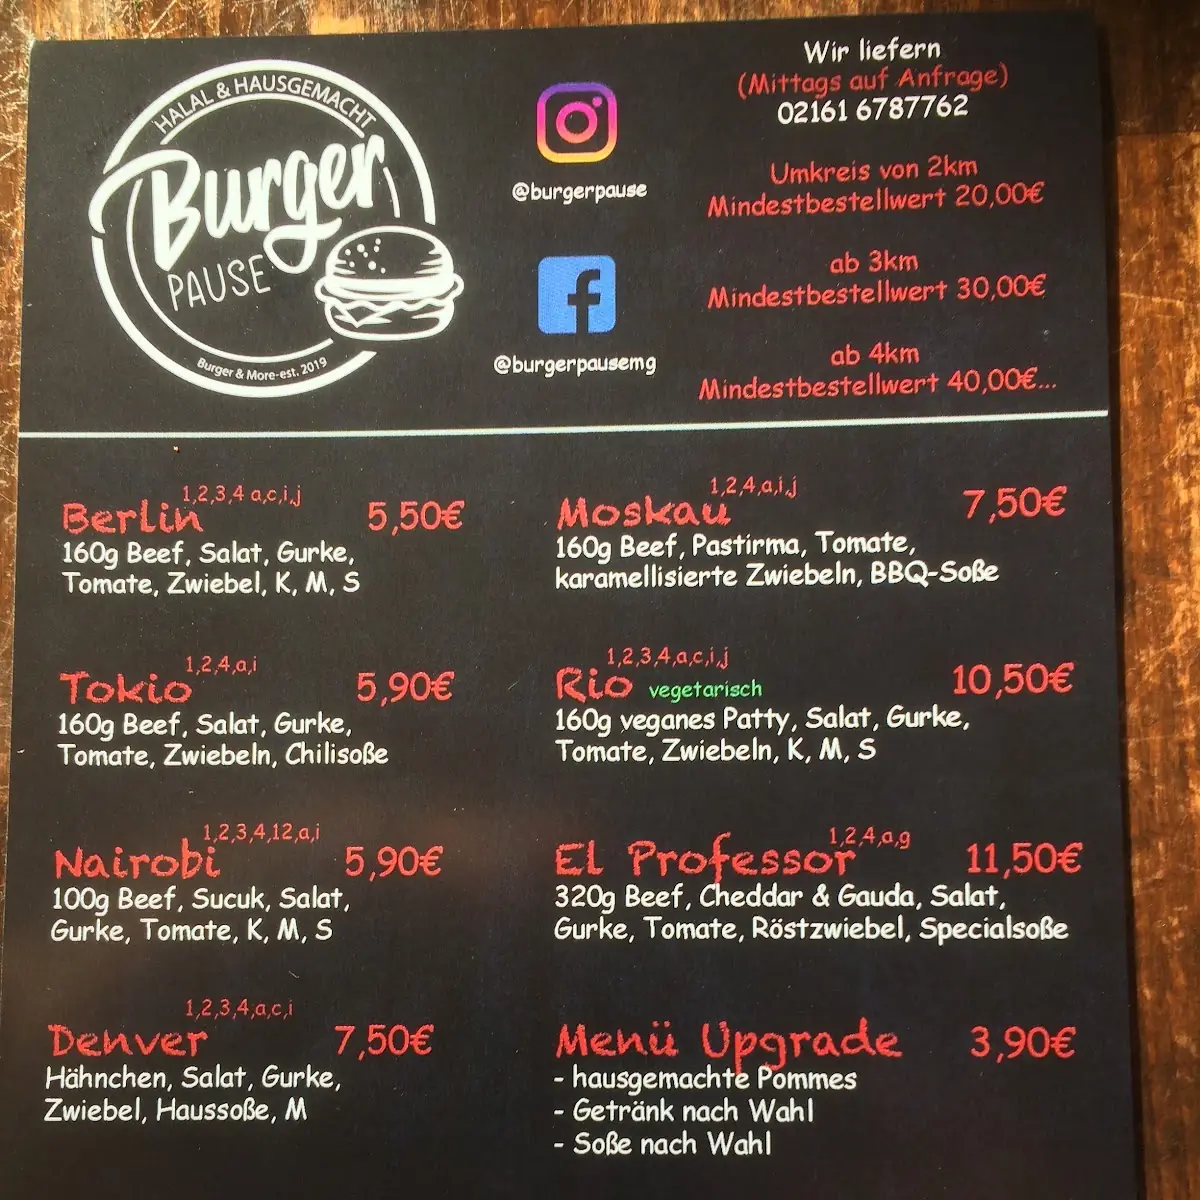 HALAL & HAUSGEMACHT
Burger
PAUSE
Burger & More-est. 2019
@burgerpause
@burgerpausemg
Wir liefern
(Mittags auf Anfrage)
02161 6787762
Umkreis von 2km
Mindestbestellwert 20,00€
ab 3km
Mindestbestellwert 30,00€
ab 4km
Mindestbestellwert 40,00€...
Berlin 1,2,3,4 a,c,i,j 5,50€
160g Beef, Salat, Gurke,
Tomate, Zwiebel, K, M, S
Tokio 1,2,4,a,i 5,90€
160g Beef, Salat, Gurke,
Tomate, Zwiebeln, Chilisoße
Nairobi 1,2,3,4,12,a,i 5,90€
100g Beef, Sucuk, Salat,
Gurke, Tomate, K, M, S
Denver 1,2,3,4,a,c,i 7,50€
Hähnchen, Salat, Gurke,
Zwiebel, Haussoße, M
Moskau 1,2,4,a,i,j 7,50€
160g Beef, Pastirma, Tomate,
karamellisierte Zwiebeln, BBQ-Soße
Rio vegetarisch 1,2,3,4,a,c,i,j 10,50€
160g veganes Patty, Salat, Gurke,
Tomate, Zwiebeln, K, M, S
El Professor 1,2,4,a,g 11,50€
320g Beef, Cheddar & Gauda, Salat,
Gurke, Tomate, Röstzwiebel, Specialsoße
Menü Upgrade 3,90€
- hausgemachte Pommes
- Getränk nach Wahl
- Soße nach Wahl